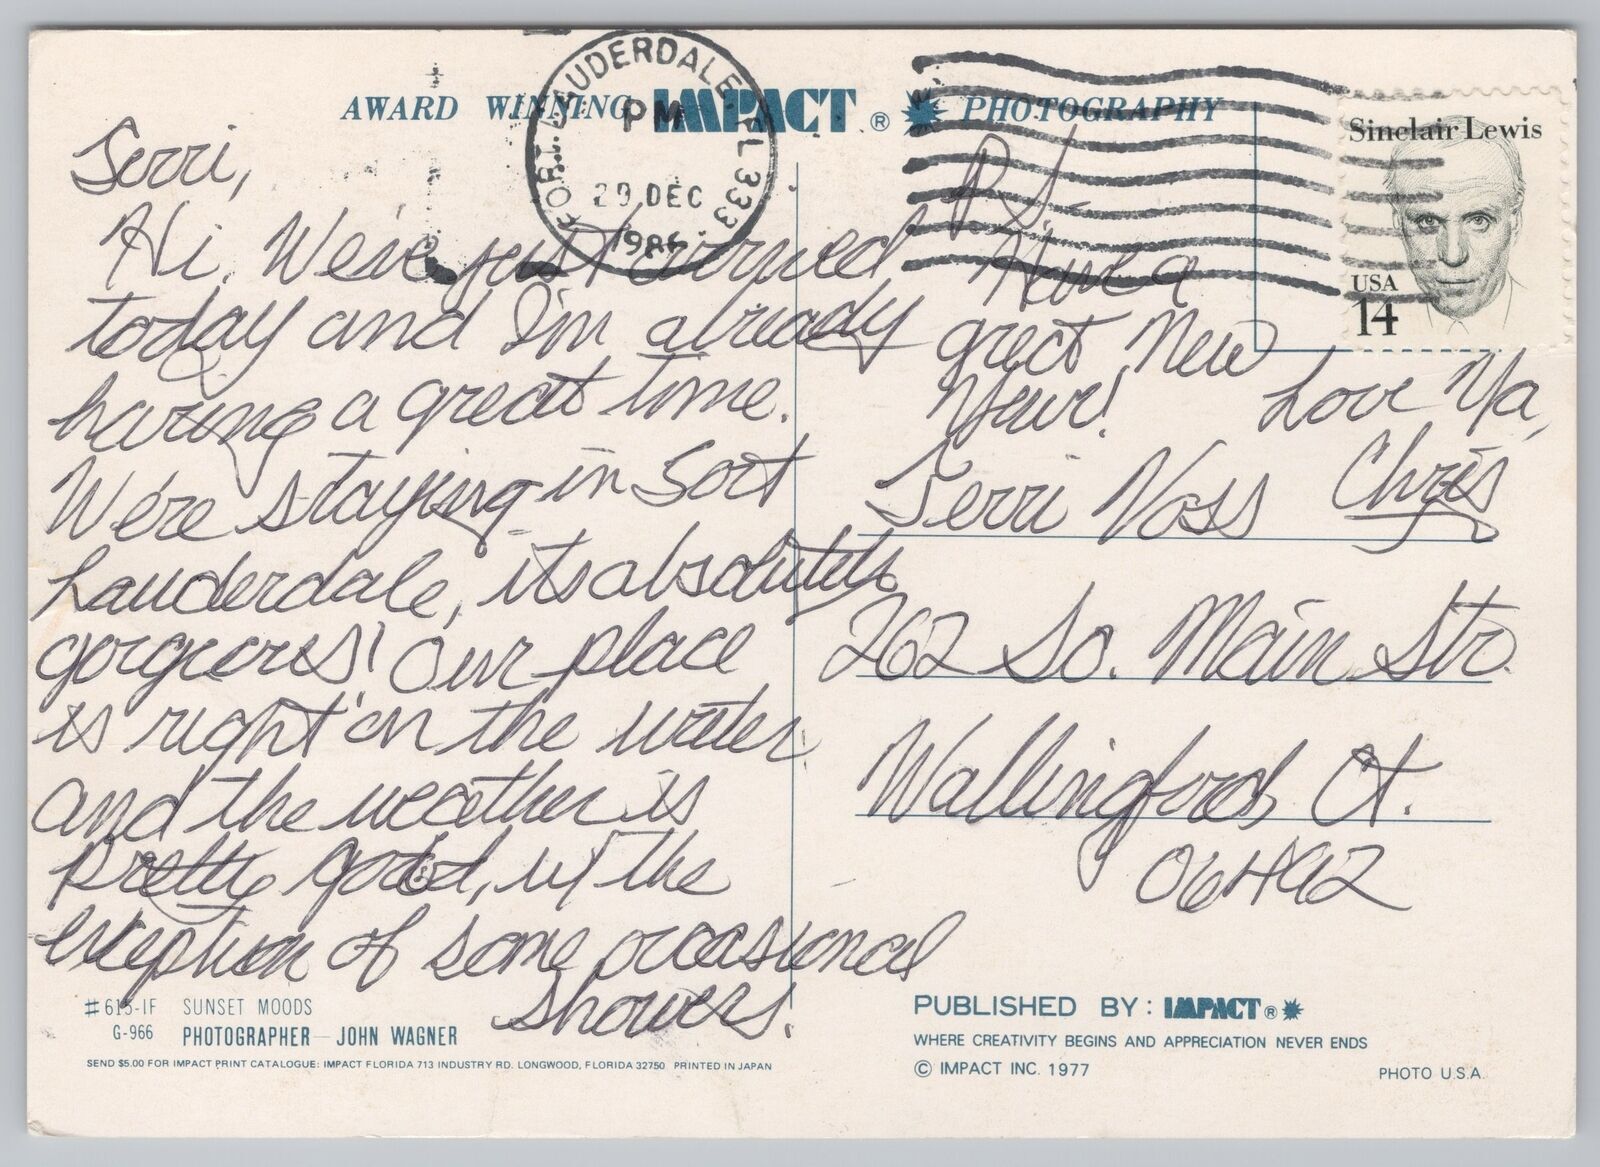 AWARD WINNING IMPACT® PHOTOGRAPHY
FORT LAUDERDALE FL 333
PM
29 DEC
1986
Sinclair Lewis
USA
14
Terri,
Hi. We've just arrived
today and I'm already
having a great time.
We're staying in Fort
Lauderdale, its absolutely
gorgeous! Our place
is right on the water
and the weather is
pretty good, w/ the
exception of some occasional
showers!
P.S.
Have a
great New
Year!
Love Ya,
Chris
Terri Voss
262 So. Main Str.
Wallingford Ct.
06492
#615-IF SUNSET MOODS
G-966 PHOTOGRAPHER — JOHN WAGNER
SEND $5.00 FOR IMPACT PRINT CATALOGUE: IMPACT FLORIDA 713 INDUSTRY RD. LONGWOOD, FLORIDA 32750 PRINTED IN JAPAN
PUBLISHED BY: IMPACT®
WHERE CREATIVITY BEGINS AND APPRECIATION NEVER ENDS
© IMPACT INC. 1977
PHOTO U.S.A.